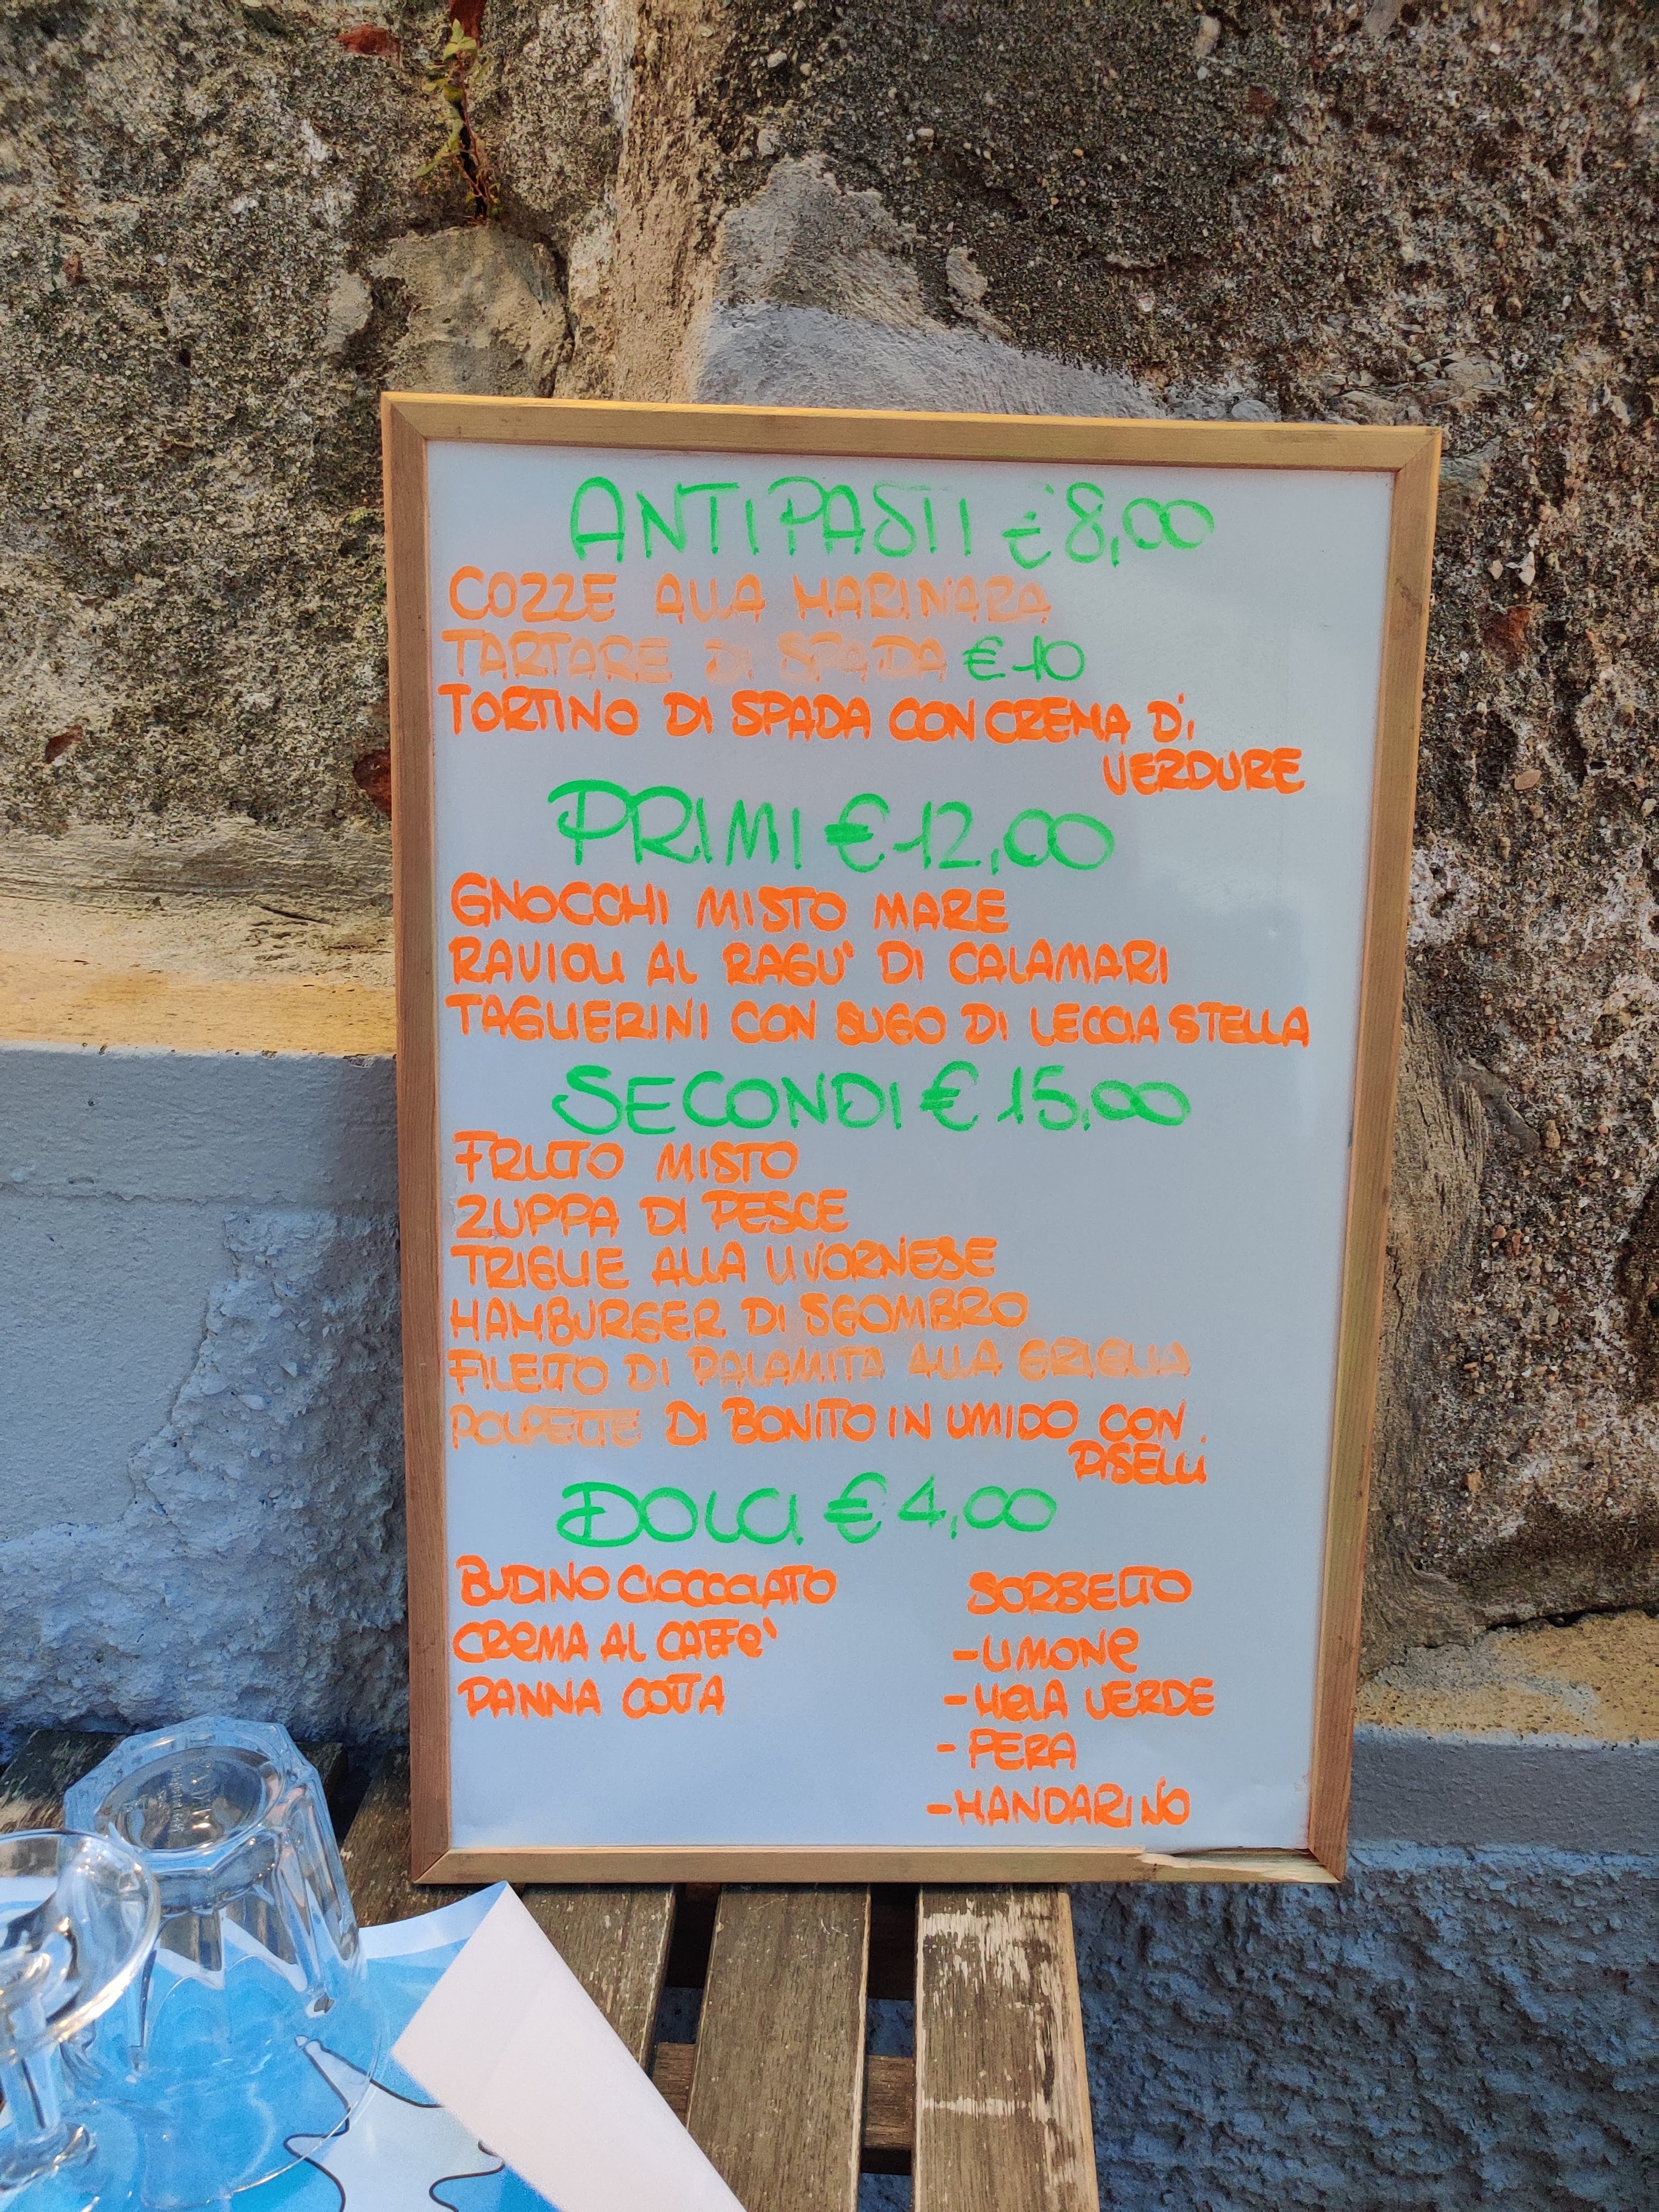 ANTIPASTI € 8,00
COZZE ALLA MARINARA
TARTARE DI SPADA € 10
TORTINO DI SPADA CON CREMA DI
VERDURE
PRIMI € 12,00
GNOCCHI MISTO MARE
RAVIOLI AL RAGU' DI CALAMARI
TAGLIERINI CON SUGO DI LECCIA STELLA
SECONDI € 15,00
FRITTO MISTO
ZUPPA DI PESCE
TRIGLIE ALLA LIVORNESE
HAMBURGER DI SGOMBRO
FILETTO DI PALAMITA ALLA GRIGLIA
POLPETTE DI BONITO IN UMIDO CON
PISELLI
DOLCI € 4,00
BUDINO CIOCCOLATO
CREMA AL CAFFE'
PANNA COTTA
SORBETTO
-LIMONE
-MELA VERDE
- PERA
-MANDARINO